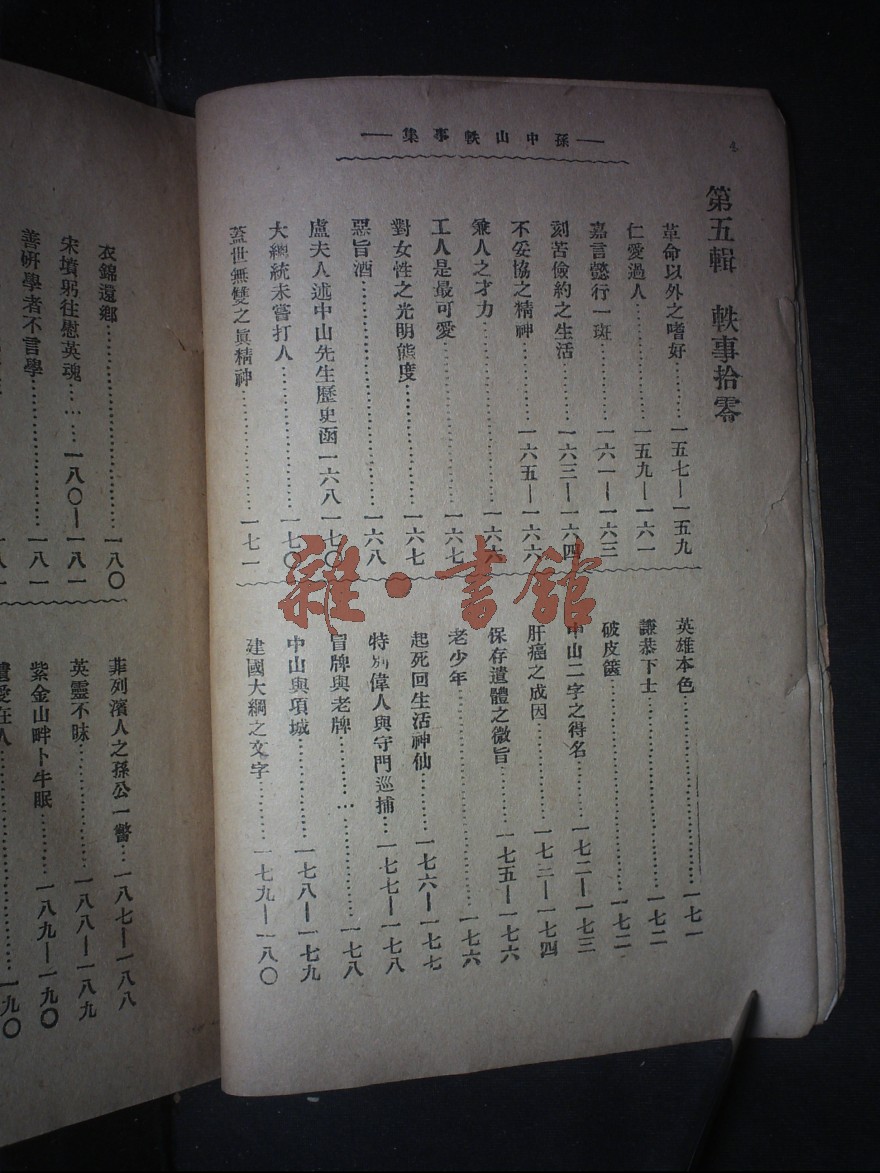 —孫中山軼事集—
4
第五輯 軼事拾零
革命以外之嗜好………一五七—一五九
仁愛過人…………一五九—一六一
嘉言懿行一斑…………一六一—一六三
刻苦儉約之生活…………一六三—一六四
不妥協之精神…………一六五—一六六
兼人之才力…………一六六
工人是最可愛…………一六七
對女性之光明態度…………一六七
惡旨酒…………一六八
盧夫人述中山先生歷史函一六八—一七〇
大總統未嘗打人…………一七〇
蓋世無雙之眞精神…………一七一
英雄本色…………一七一
謙恭下士…………一七二
破皮篋…………一七二
中山二字之得名…………一七二—一七三
肝癌之成因…………一七三—一七四
保存遺體之微旨…………一七五—一七六
老少年…………一七六
起死回生活神仙………一七六—一七七
特別偉人與守門巡捕…一七七—一七八
冒牌與老牌…………一七八
中山與項城…………一七八—一七九
建國大綱之文字………一七九—一八〇
衣錦還鄉…………一八〇
宋墳躬往慰英魂……一八〇—一八一
善研學者不言學…………一八一
菲列濱人之孫公一瞥…一八七—一八八
英靈不昧…………一八八—一八九
紫金山畔卜牛眠………一八九—一九〇
遺愛在人…………一九〇
雜·書館